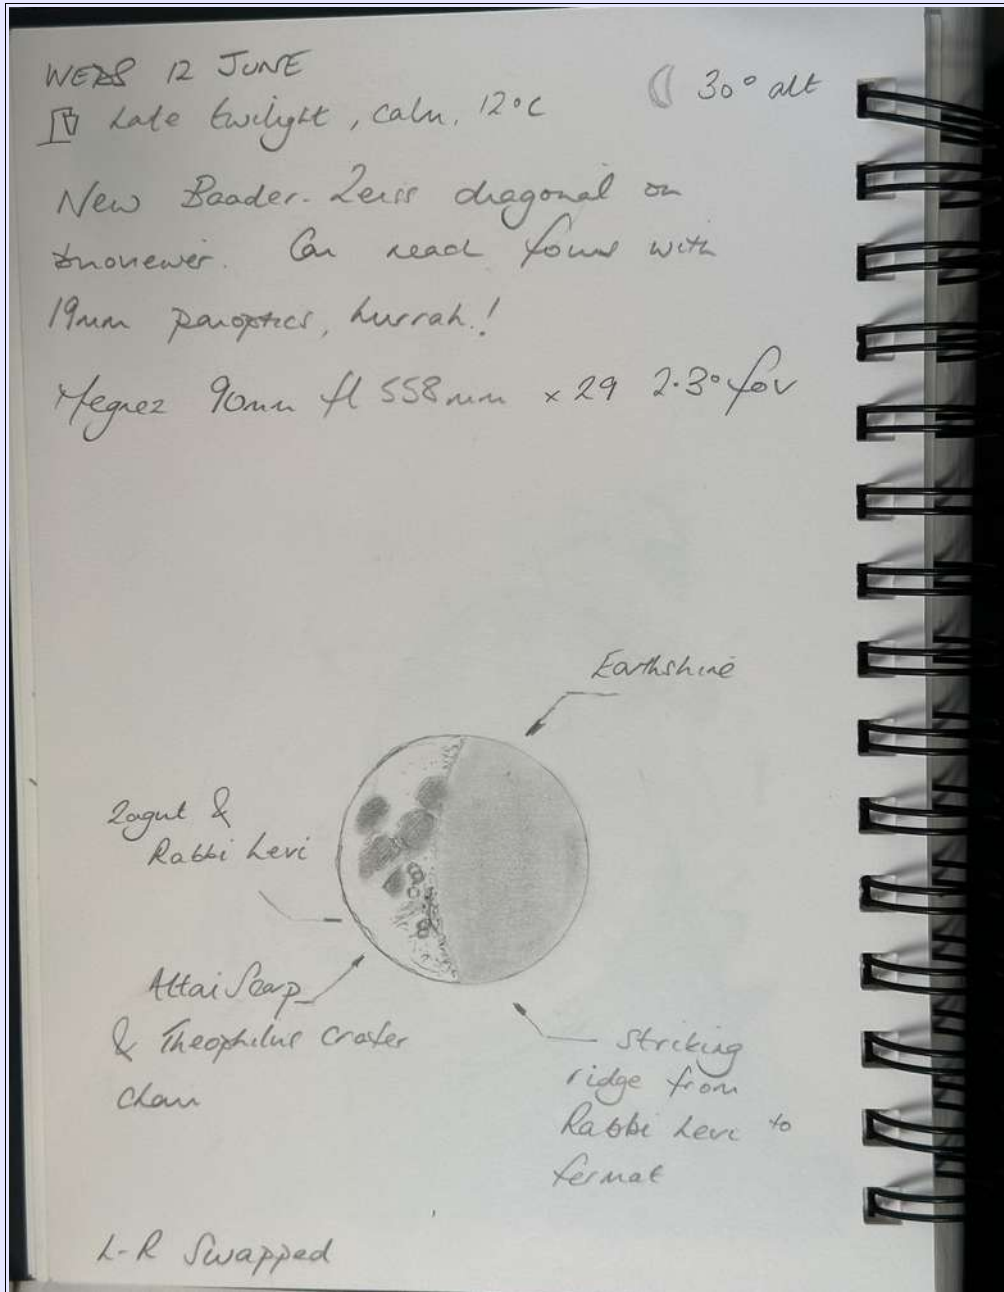 WEDS 12 JUNE
30° alt
Late twilight, calm, 12°C
New Baader-Zeiss diagonal on
binoviewer. Can reach focus with
19mm panoptics, hurrah!
Megrez 90mm fl 558mm x 29 2.3° fov
Earthshine
Zagut &
Rabbi Levi
Altai Scarp
& Theophilus crater
chain
Striking
ridge from
Rabbi Levi to
fermat
L-R Swapped